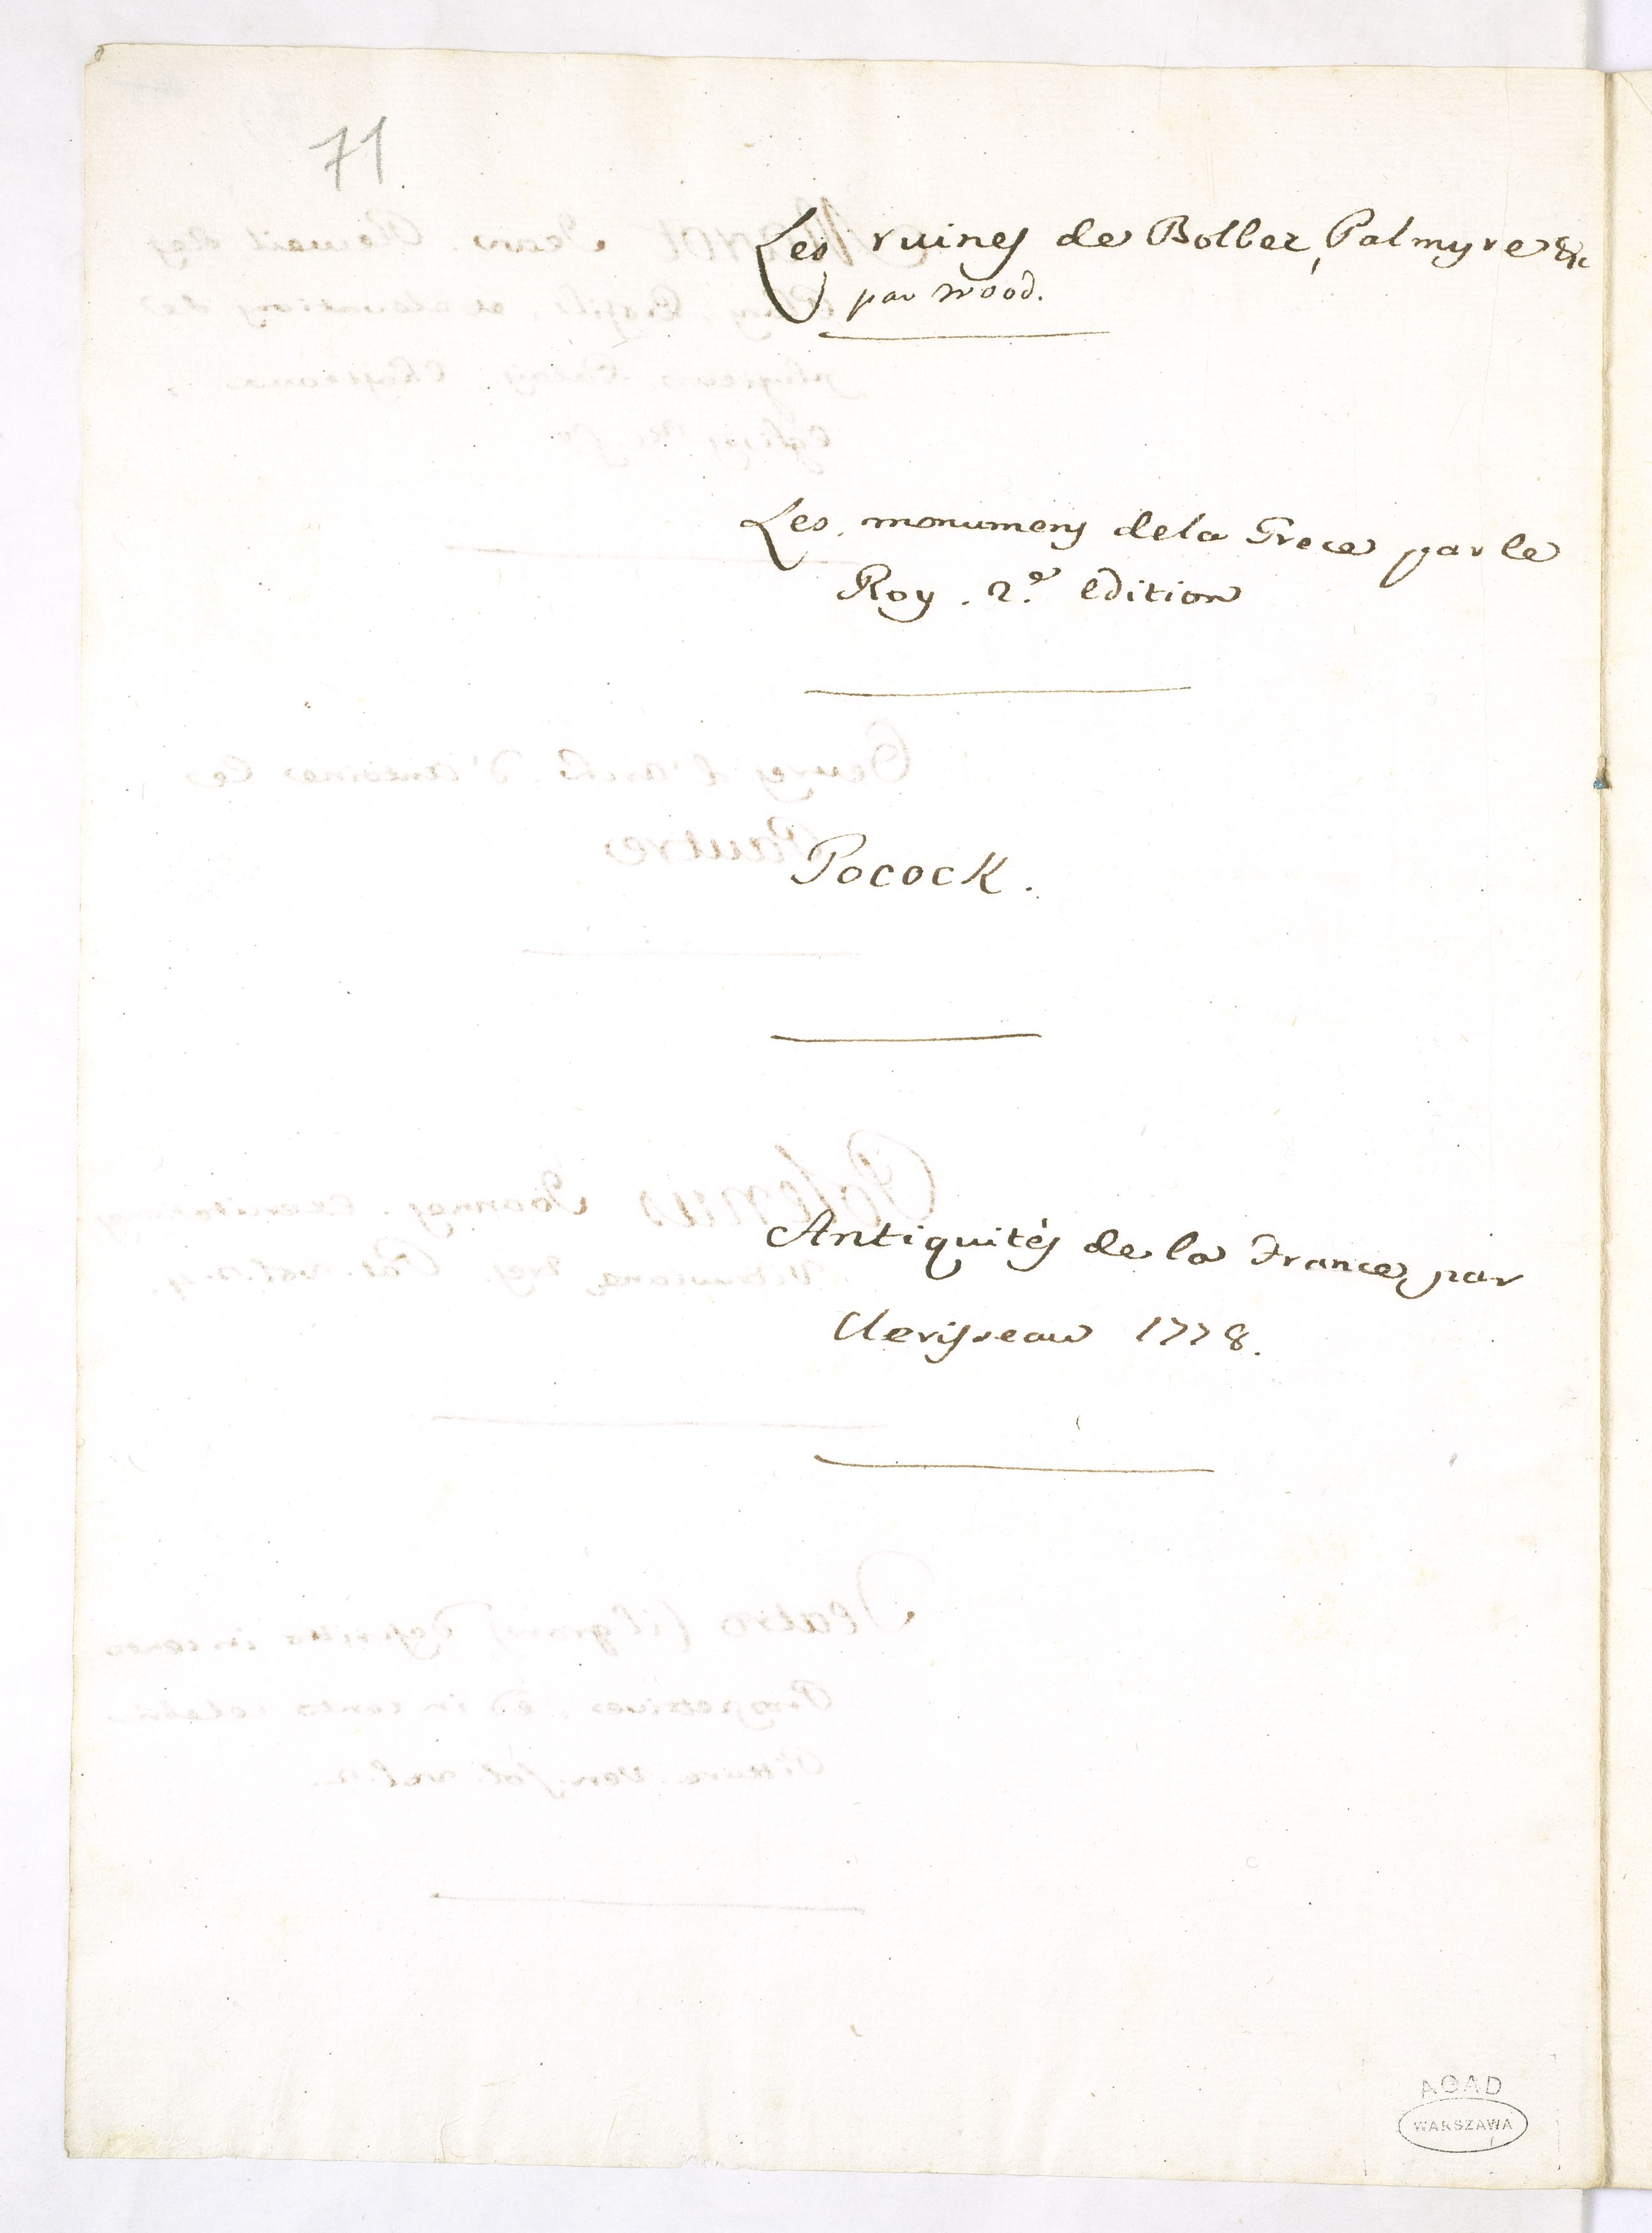 71
Les ruines de Bolbec, Palmyre &c
par Wood.
Les monumens de la Grece par le
Roy. 2.e edition
Pocock.
Antiquités de la France, par
Clerisseau 1778.
AGAD
WARSZAWA